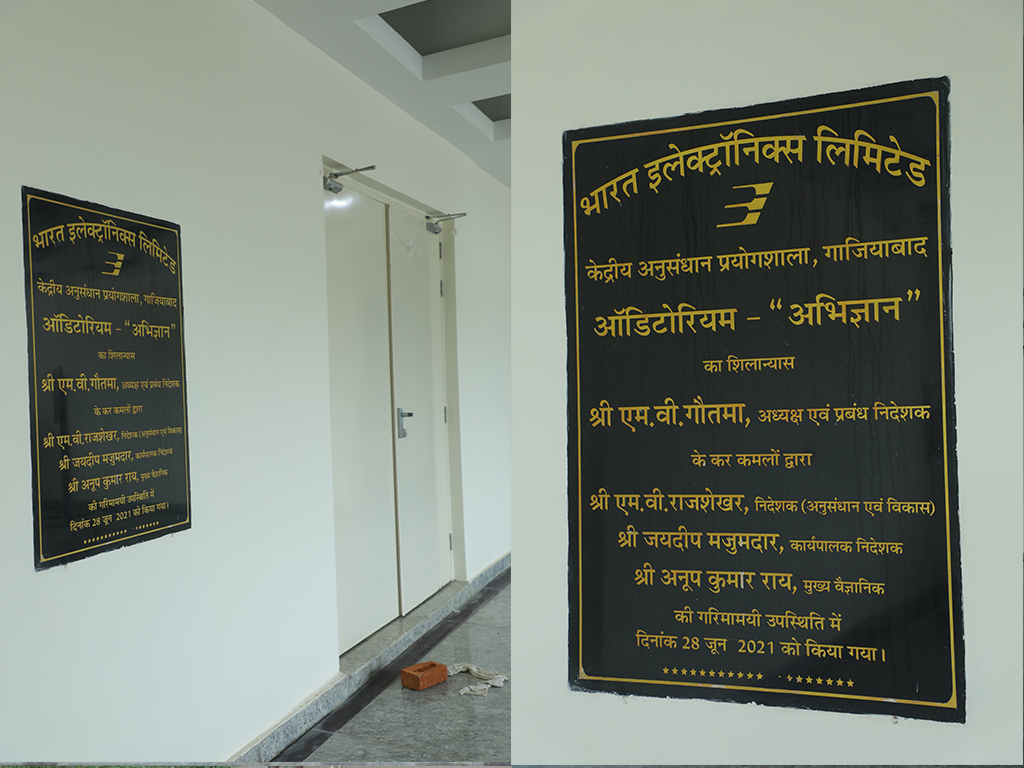 भारत इलेक्ट्रॉनिक्स लिमिटेड
केद्रीय अनुसंधान प्रयोगशाला, गाजियाबाद
ऑडिटोरियम - “अभिज्ञान”
का शिलान्यास
श्री एम.वी.गौतमा, अध्यक्ष एवं प्रबंध निदेशक
के कर कमलों द्वारा
श्री एम.वी.राजशेखर, निदेशक (अनुसंधान एवं विकास)
श्री जयदीप मजुमदार, कार्यपालक निदेशक
श्री अनूप कुमार राय, मुख्य वैज्ञानिक
की गरिमामयी उपस्थिति में
दिनांक 28 जून 2021 को किया गया।
भारत इलेक्ट्रॉनिक्स लिमिटेड
केद्रीय अनुसंधान प्रयोगशाला, गाजियाबाद
ऑडिटोरियम – “अभिज्ञान”
का शिलान्यास
श्री एम.वी.गौतमा, अध्यक्ष एवं प्रबंध निदेशक
के कर कमलों द्वारा
श्री एम.वी.राजशेखर, निदेशक (अनुसंधान एवं विकास)
श्री जयदीप मजुमदार, कार्यपालक निदेशक
श्री अनूप कुमार राय, मुख्य वैज्ञानिक
की गरिमामयी उपस्थिति में
दिनांक 28 जून 2021 को किया गया।